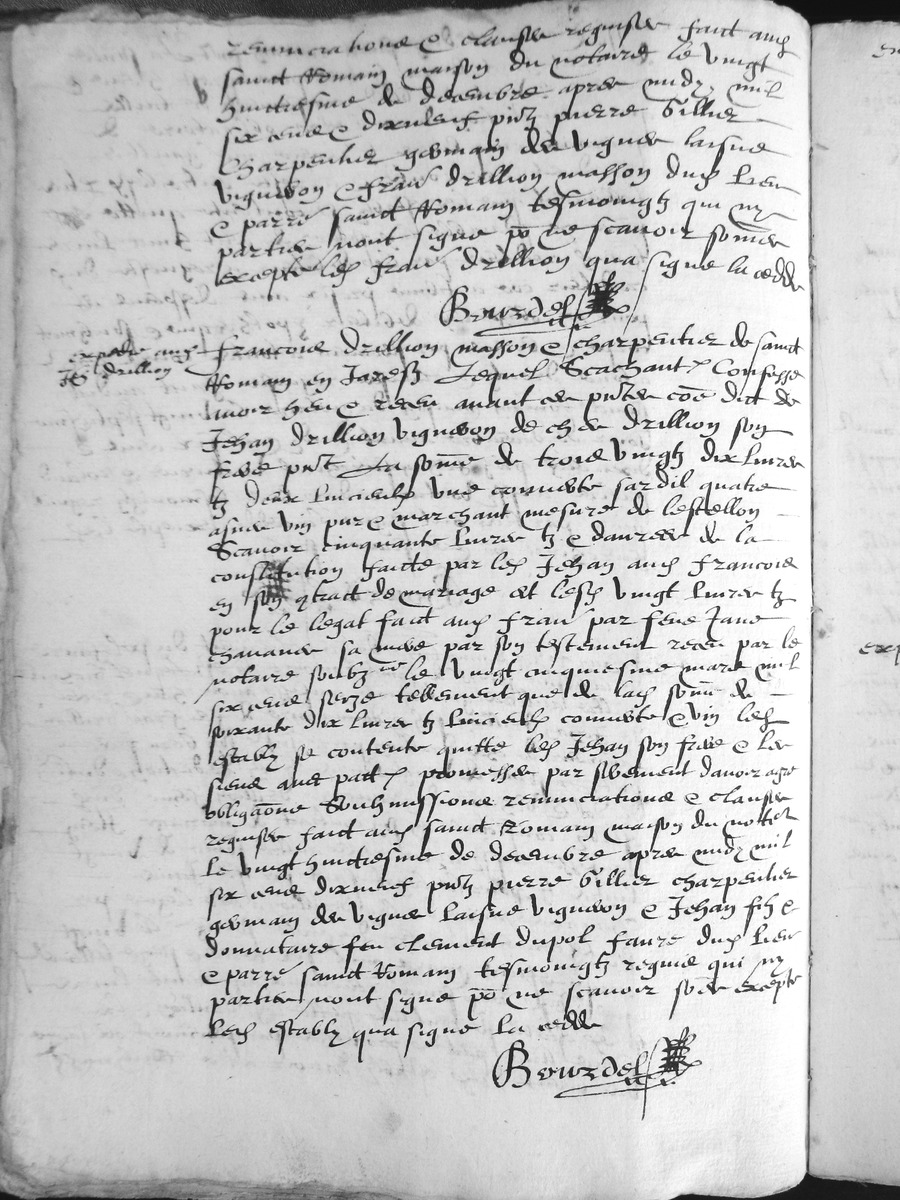 renunciations & clauses requises faict aud
sainct Romain maison du notaire le vingt
huictiesme de decembre apres midy mil
six cens & dixneuf pntz pierre Gillier
Charpentier germain des vignes laisne
vigneron & Frans drillion masson dud lieu
& parre sainct Romain tesmoingtz qui ny
parties nont signe po ne scavoir sommes
excepte led Frans drillion qua signe la cedde
Bourdel
expedie aud
Jeh drillion
Francois drillion masson & charpentier de sainct
Romain en Jarestz Lequel Scachant Confesse
avoir heu & receu avant ces pntes coe dict de
Jehan drillion vigneron de ches drillion son
frere pnt La some de trois vingtz dix livres
tz deux linceulz une couverte sardil quatre
asnees vin pur & marchant mesure de lestellon
Scavoir cinquante livres tz & danrees de la
constitution faicte par led Jehan aud Francois
en son contract de mariage et lesd vingt livres tz
pour le legat faict aud Frans par feue Jane
chavane sa mere par son testement receu par le
notaire soubzne le vingt cinquiesme mars mil
six cens seize tellement que de lad some de
soixante dix livres tz linceulz couverte & vin led
estably se contente quitte led Jehan son frere & les
siens avec pact promesses par serement davoir agre
obligaons soubmissions renunciations & clauses
requises faict aud sainct Romain maison du notere
le vingt huictiesme de decembre apres midy mil
six cens dixneuf pntz pierre Gillier charpentier
germain des vignes laisne vigneron & Jehan filz &
donnataire feu clement dupol faure dud lieu
& parre sainct Romain tesmoingtz requis qui ny
parties nont signe po ne scavoir so es excepte
led estably qua signe la cedde
Bourdel